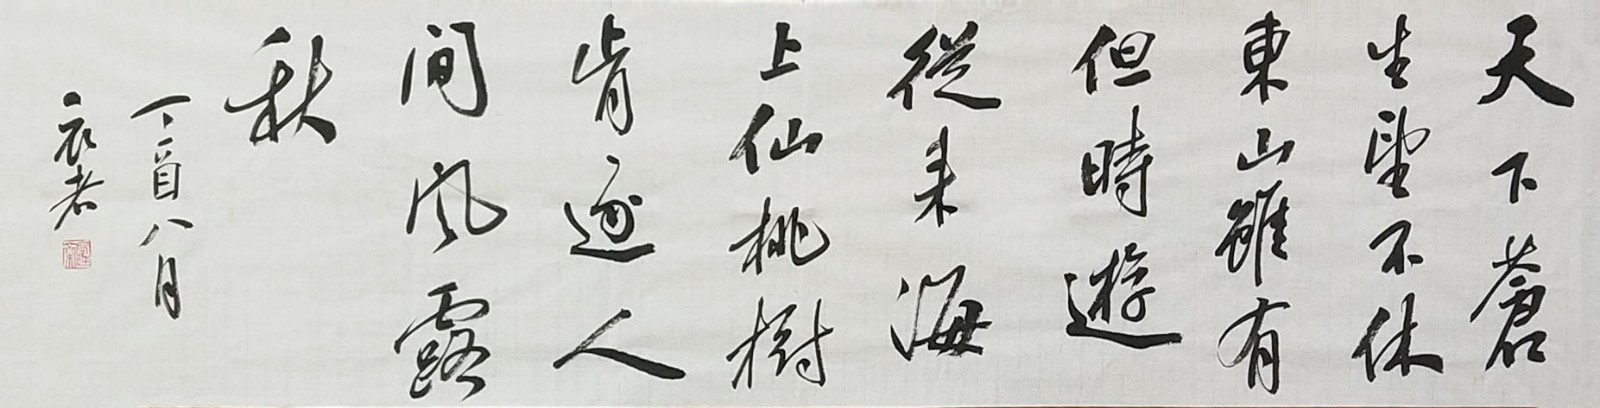 天下蒼
生望不休
東山雖有
但時遊
從来海
上仙桃樹
肯逐人
间风露
秋
丁酉八月